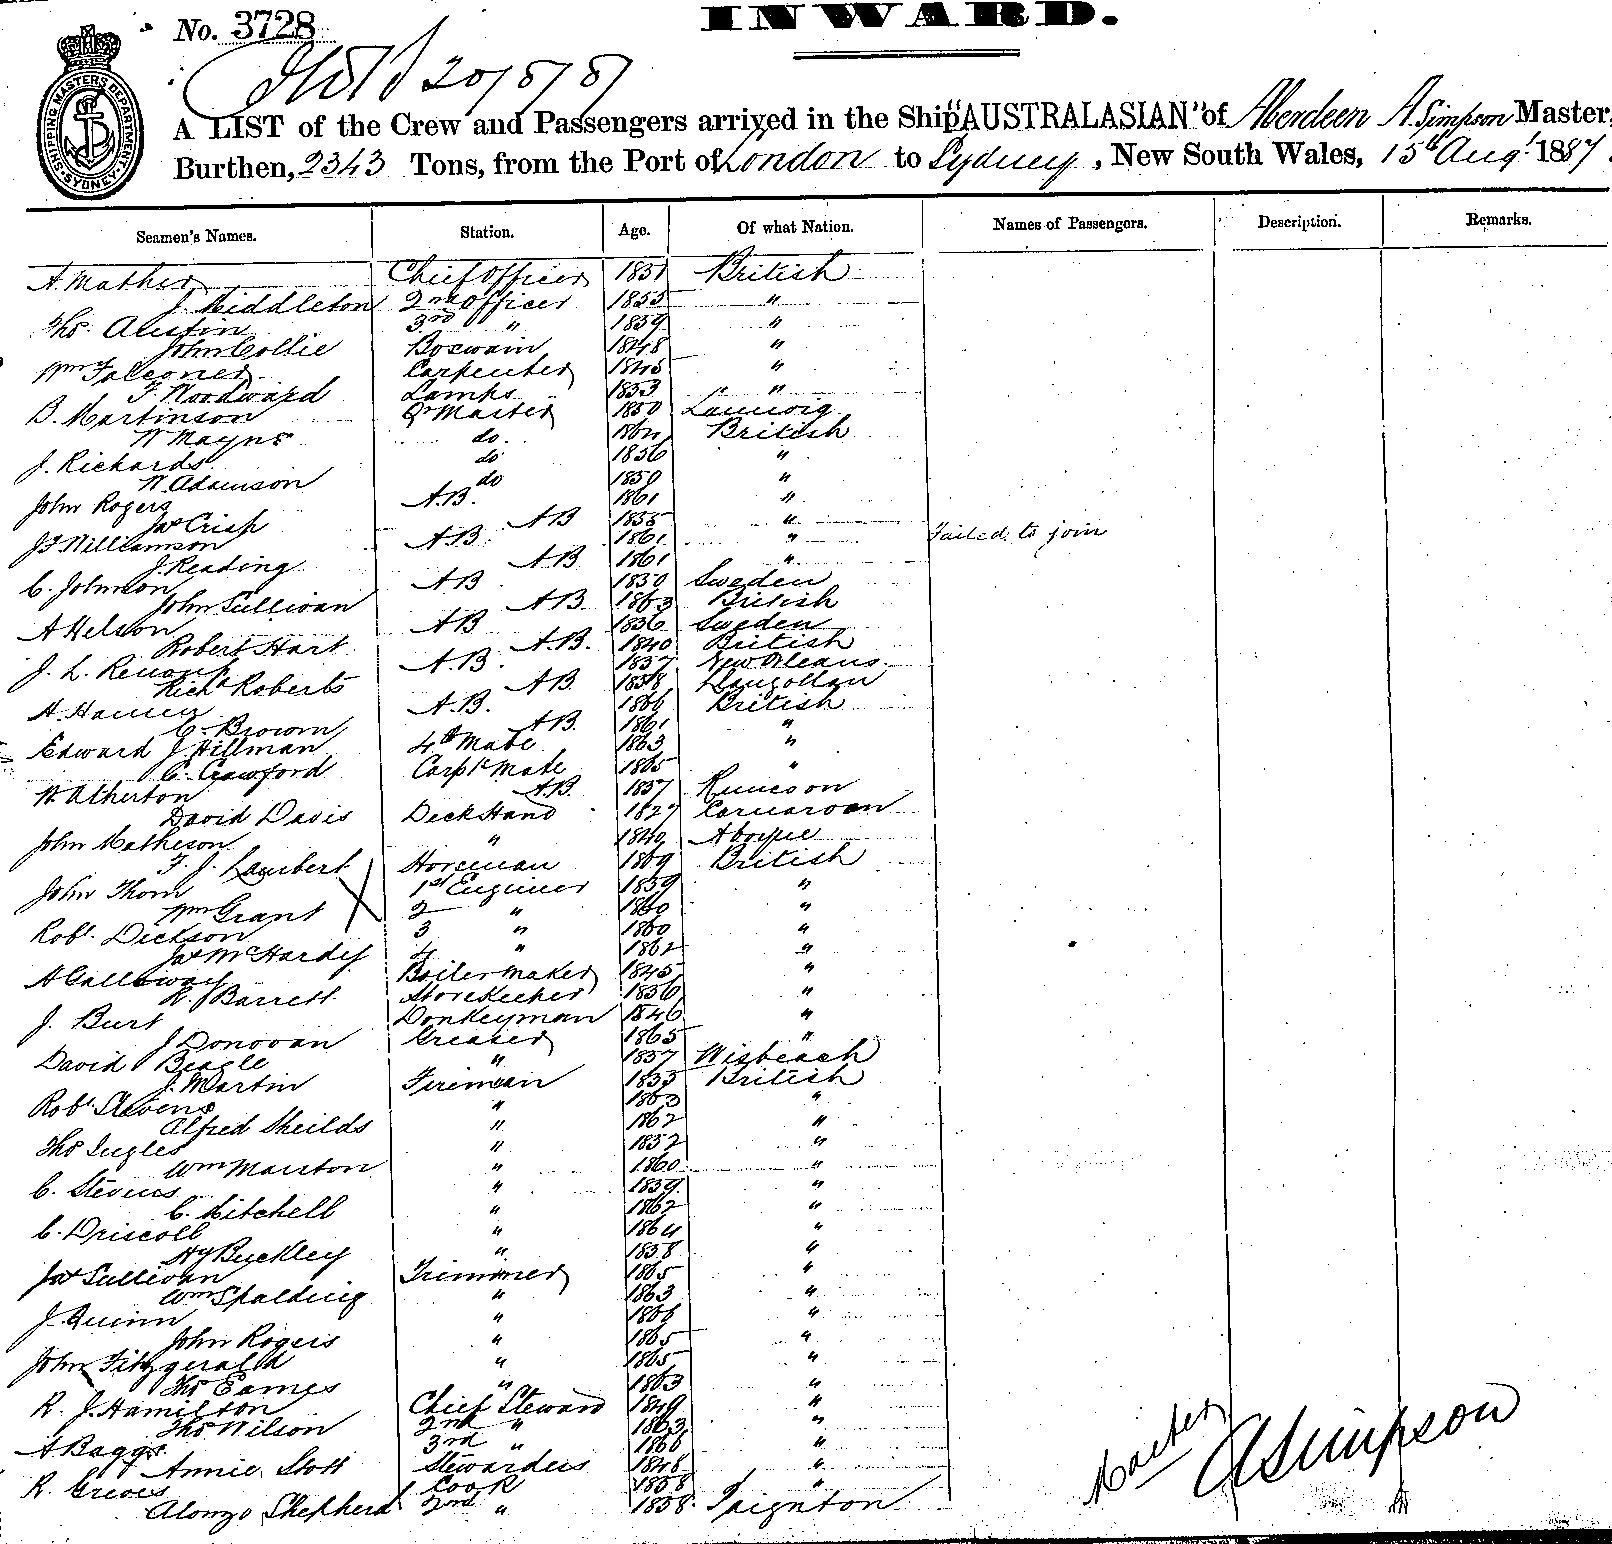 No. 3728
INWARD.
SHIPPING MASTERS DEPARTMENT SYDNEY
A LIST of the Crew and Passengers arrived in the Ship "AUSTRALASIAN" of Aberdeen A. Simpson Master,
Burthen, 2343 Tons, from the Port of London to Sydney, New South Wales, 15th Augt 1887.
Seamen's Names. Station. Age. Of what Nation. Names of Passengers. Description. Remarks.
A Mather Chief Officer 1851 British
J. Middleton 2nd Officer 1855 "
Thos. Austin 3rd " 1859 "
John Collie Boswain 1848 "
Wm Falconer Carpenter 1845 "
F. Woodward Lamps 1853 "
B. Martinson Qr Master 1850
W Mayne do. 1864 British
J. Richards do 1856 "
W. Adamson do 1859 "
John Rogers A.B. 1861 "
Jas Crisp AB 1855 "
J J Williamson AB 1861 " Failed to join
J. Reading AB 1861 "
C. Johnson AB 1830 Sweden
John Sullivan AB. 1863 British
A Nelson AB 1836 Sweden
Robert Hart A.B. 1840 British
J. L. A.B. 1857 New Orleans
Richd Roberts AB. 1858 Llangollan
A. Hansen A.B. 1866 British
C. Brown AB. 1861 "
Edward J Hillman 4th Mate 1863 "
C. Crawford Carptr Mate 1865 "
W. Atherton A.B. 1857 Runcorn
David Davis Deck Hand 1827 Carnarvon
John Matheson " 1840 Aboyne
F. J. Lambert Horseman 1869 British
John Thom 1st Engineer 1859 "
Wm Grant 2 " 1860 "
Robt. Dickson 3 " 1860 "
Jas McHardy 4 " 1862 "
A Galloway Boilermaker 1845 "
R. Barrett Storekeeper 1856 "
J. Burt Donkeyman 1846 "
J Donovan Greaser 1865 "
David Beagle " 1857 Wisbeach
J. Martin Fireman 1855 British
Robt Stevens " 1863 "
Alfred Sheilds " 1862 "
Thos Ingles " 1852 "
Wm Marston " 1860 "
C. Stevens " 1859 "
C. Mitchell " 1862 "
C. Driscoll " 1864 "
Hy Buckley " 1858 "
Jas Sullivan Trimmer 1865 "
Wm Spalding " 1863 "
J. Quinn " 1866 "
John Rogers " 1865 "
John Fitzgerald " 1865 "
Thos Eames " 1863 "
R. J. Hamilton Chief Steward 1849 "
Thos Wilson 2nd " 1863 "
A Baggs 3rd " 1866 "
Annie Stott Stewardess 1848 "
R. Greaves Cook 1858 "
Alonzo Shepherd 2nd " 1858 Paignton
Master A Simpson